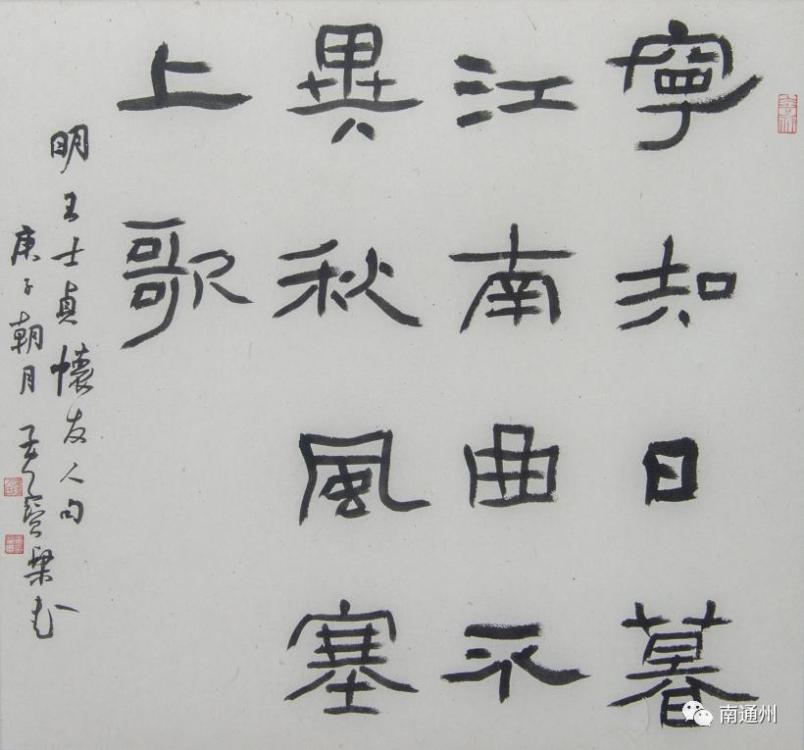 寧知日暮
江南曲不
異秋風塞
上歌
明王士貞懷友人句
庚子朝月
南通州